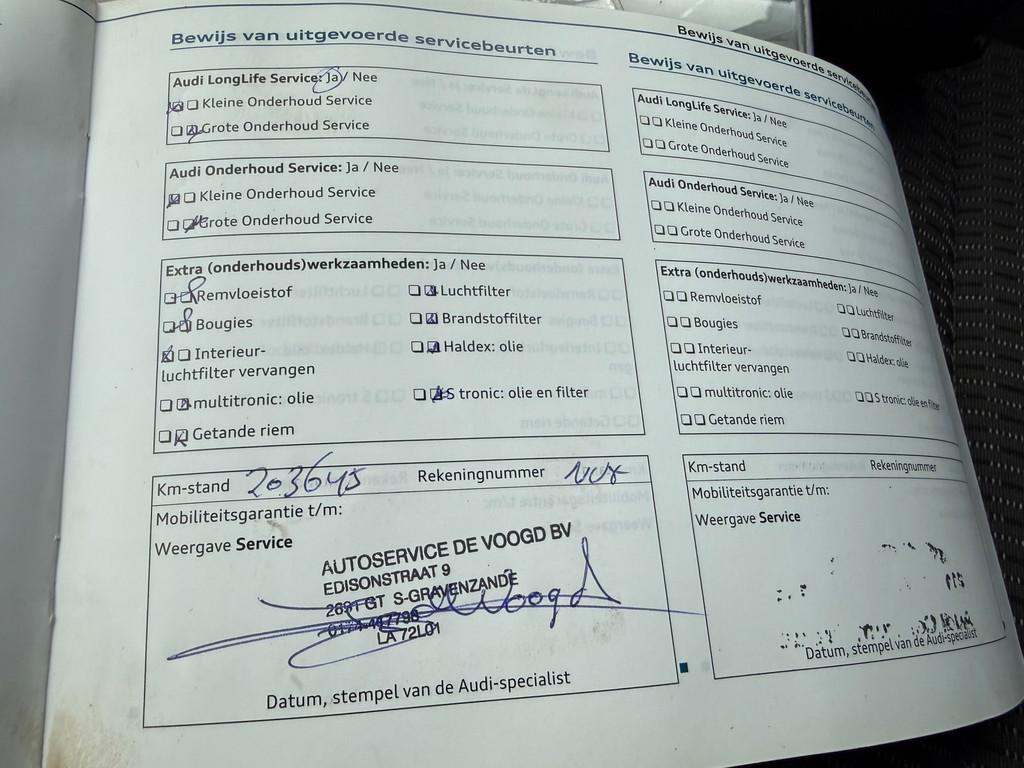 Bewijs van uitgevoerde servicebeurten
Audi LongLife Service: Ja / Nee
Kleine Onderhoud Service
Grote Onderhoud Service
Audi Onderhoud Service: Ja / Nee
Kleine Onderhoud Service
Grote Onderhoud Service
Extra (onderhouds)werkzaamheden: Ja / Nee
Remvloeistof Luchtfilter
Bougies Brandstoffilter
Interieur- Haldex: olie
luchtfilter vervangen
multitronic: olie S tronic: olie en filter
Getande riem
Km-stand 203645 Rekeningnummer
Mobiliteitsgarantie t/m:
Weergave Service
AUTOSERVICE DE VOOGD BV
EDISONSTRAAT 9
2691 GT S-GRAVENZANDE
LA 72L01
Datum, stempel van de Audi-specialist
Bewijs van uitgevoerde servicebeurten
Bewijs van uitgevoerde servicebeurten
Audi LongLife Service: Ja / Nee
Kleine Onderhoud Service
Grote Onderhoud Service
Audi Onderhoud Service: Ja / Nee
Kleine Onderhoud Service
Grote Onderhoud Service
Extra (onderhouds)werkzaamheden: Ja / Nee
Remvloeistof Luchtfilter
Bougies Brandstoffilter
Interieur- Haldex: olie
luchtfilter vervangen
multitronic: olie S tronic: olie en filter
Getande riem
Km-stand Rekeningnummer
Mobiliteitsgarantie t/m:
Weergave Service
Datum, stempel van de Audi-specialist